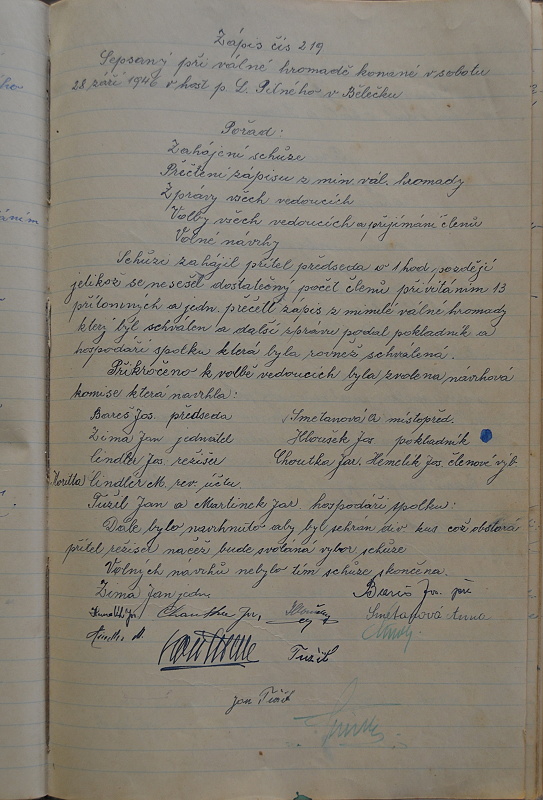 Zápis čís 219
Sepsaný při válné hromadě konané v sobotu
28 září 1946 v host p. L. Pilného v Bělečku
Pořad:
Zahájení schůze
Přečtení zápisu z min. vál. hromady
Zprávy všech vedoucích
Volby všech vedoucích a přijímání členů
Volné návrhy
Schůzi zahájil přítel předseda v 1 hod později
jelikož se nesešel dostatečný počet členů přivítáním 13
přítomných a jedn. přečetl zápis z minulé válné hromady
který byl schválen a další zprávu podal pokladník a
hospodáři spolku která byla rovněž schválená.
Přikročeno k volbě vedoucích byla zvolena návrhová
komise která navrhla:
Bareš Jos. předseda Smetanová A místopřed.
Zima Jan jednatel Hloušek Jos pokladník
Cindler Jos režiser Choutka Jar. Hemelík Jos. členové výb.
Cindler M. rev. účtu.
Tužil Jan a Martinek Jar. hospodáři spolku:
Dále bylo navrhnuto aby byl sehrán div kus což obstará
přítel režiser načež bude svolaná výbor schůze
Volných návrhů nebylo tím schůze skončena.
Zima Jan jedn Bareš Jos. př
Choutka Jr. Smetanová Anna
Tužil
Jan